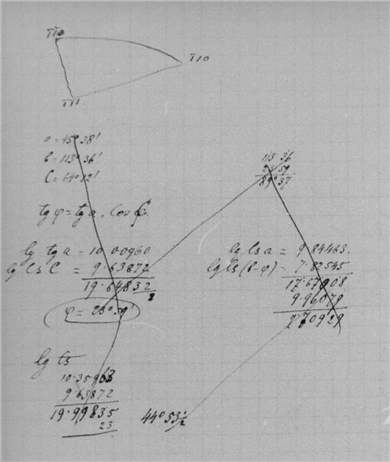 T10
T10
T11.
a = 45° 38'
b = 113° 36'
C = 64° 12'
tg φ = tg a . Cos C.
lg tg a = 10.00960
lg Cs C = 9.63872
19.64832
φ = 23° 59'
113 36
23 59
89° 37
lg Cs a = 9.84463.
lg Cs (b-φ) = 7.82545
17.67008
9.96079
7.70929
lg ts
9.63872
19.99835
23
44° 53½